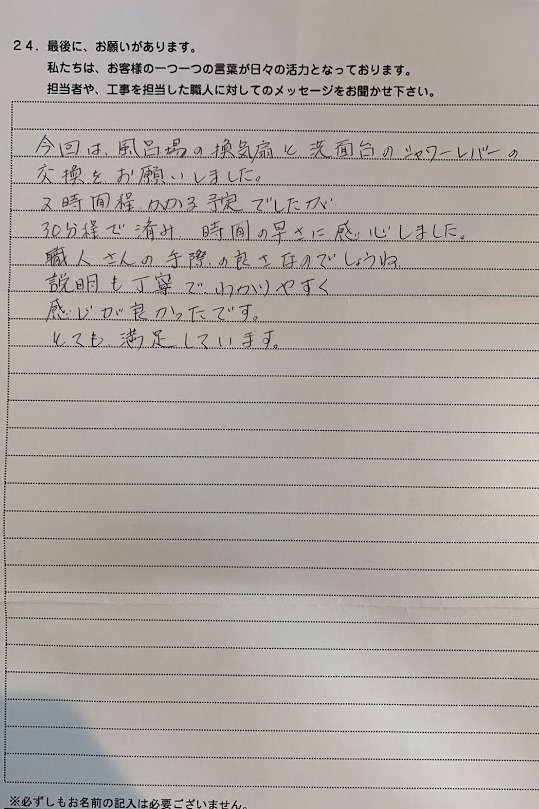 24．最後に、お願いがあります。
私たちは、お客様の一つ一つの言葉が日々の活力となっております。
担当者や、工事を担当した職人に対してのメッセージをお聞かせ下さい。
今回は、風呂場の換気扇と洗面台のシャワーレバーの
交換をお願いしました。
2時間程かかる予定でしたが
30分程で済み、時間の早さに感心しました。
職人さんの手際の良さなのでしょうね
説明も丁寧でわかりやすく
感じが良かったです。
とても満足しています。
※必ずしもお名前の記入は必要ございません。